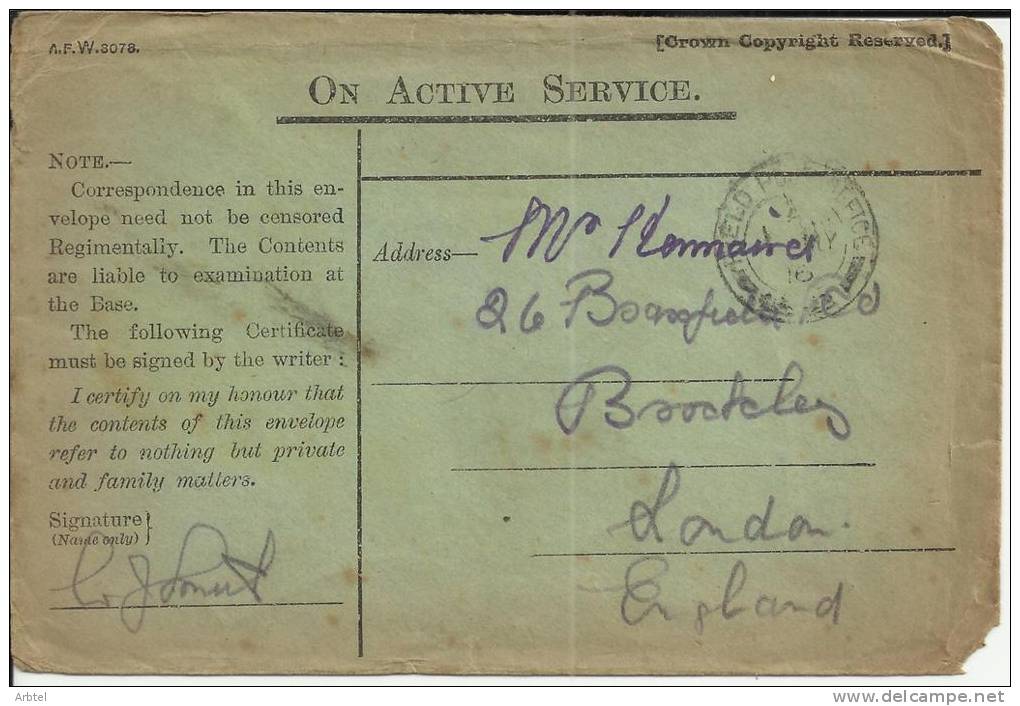 A.F.W.3078.
[Crown Copyright Reserved.]
ON ACTIVE SERVICE.
NOTE.—
Correspondence in this en-
velope need not be censored
Regimentally. The Contents
are liable to examination at
the Base.
The following Certificate
must be signed by the writer :
I certify on my honour that
the contents of this envelope
refer to nothing but private
and family matters.
Signature }
(Name only)
Address—
FIELD POST OFFICE
16
Mr
26
Rd
Brockley
London.
England
Arbtel
www.delcampe.net